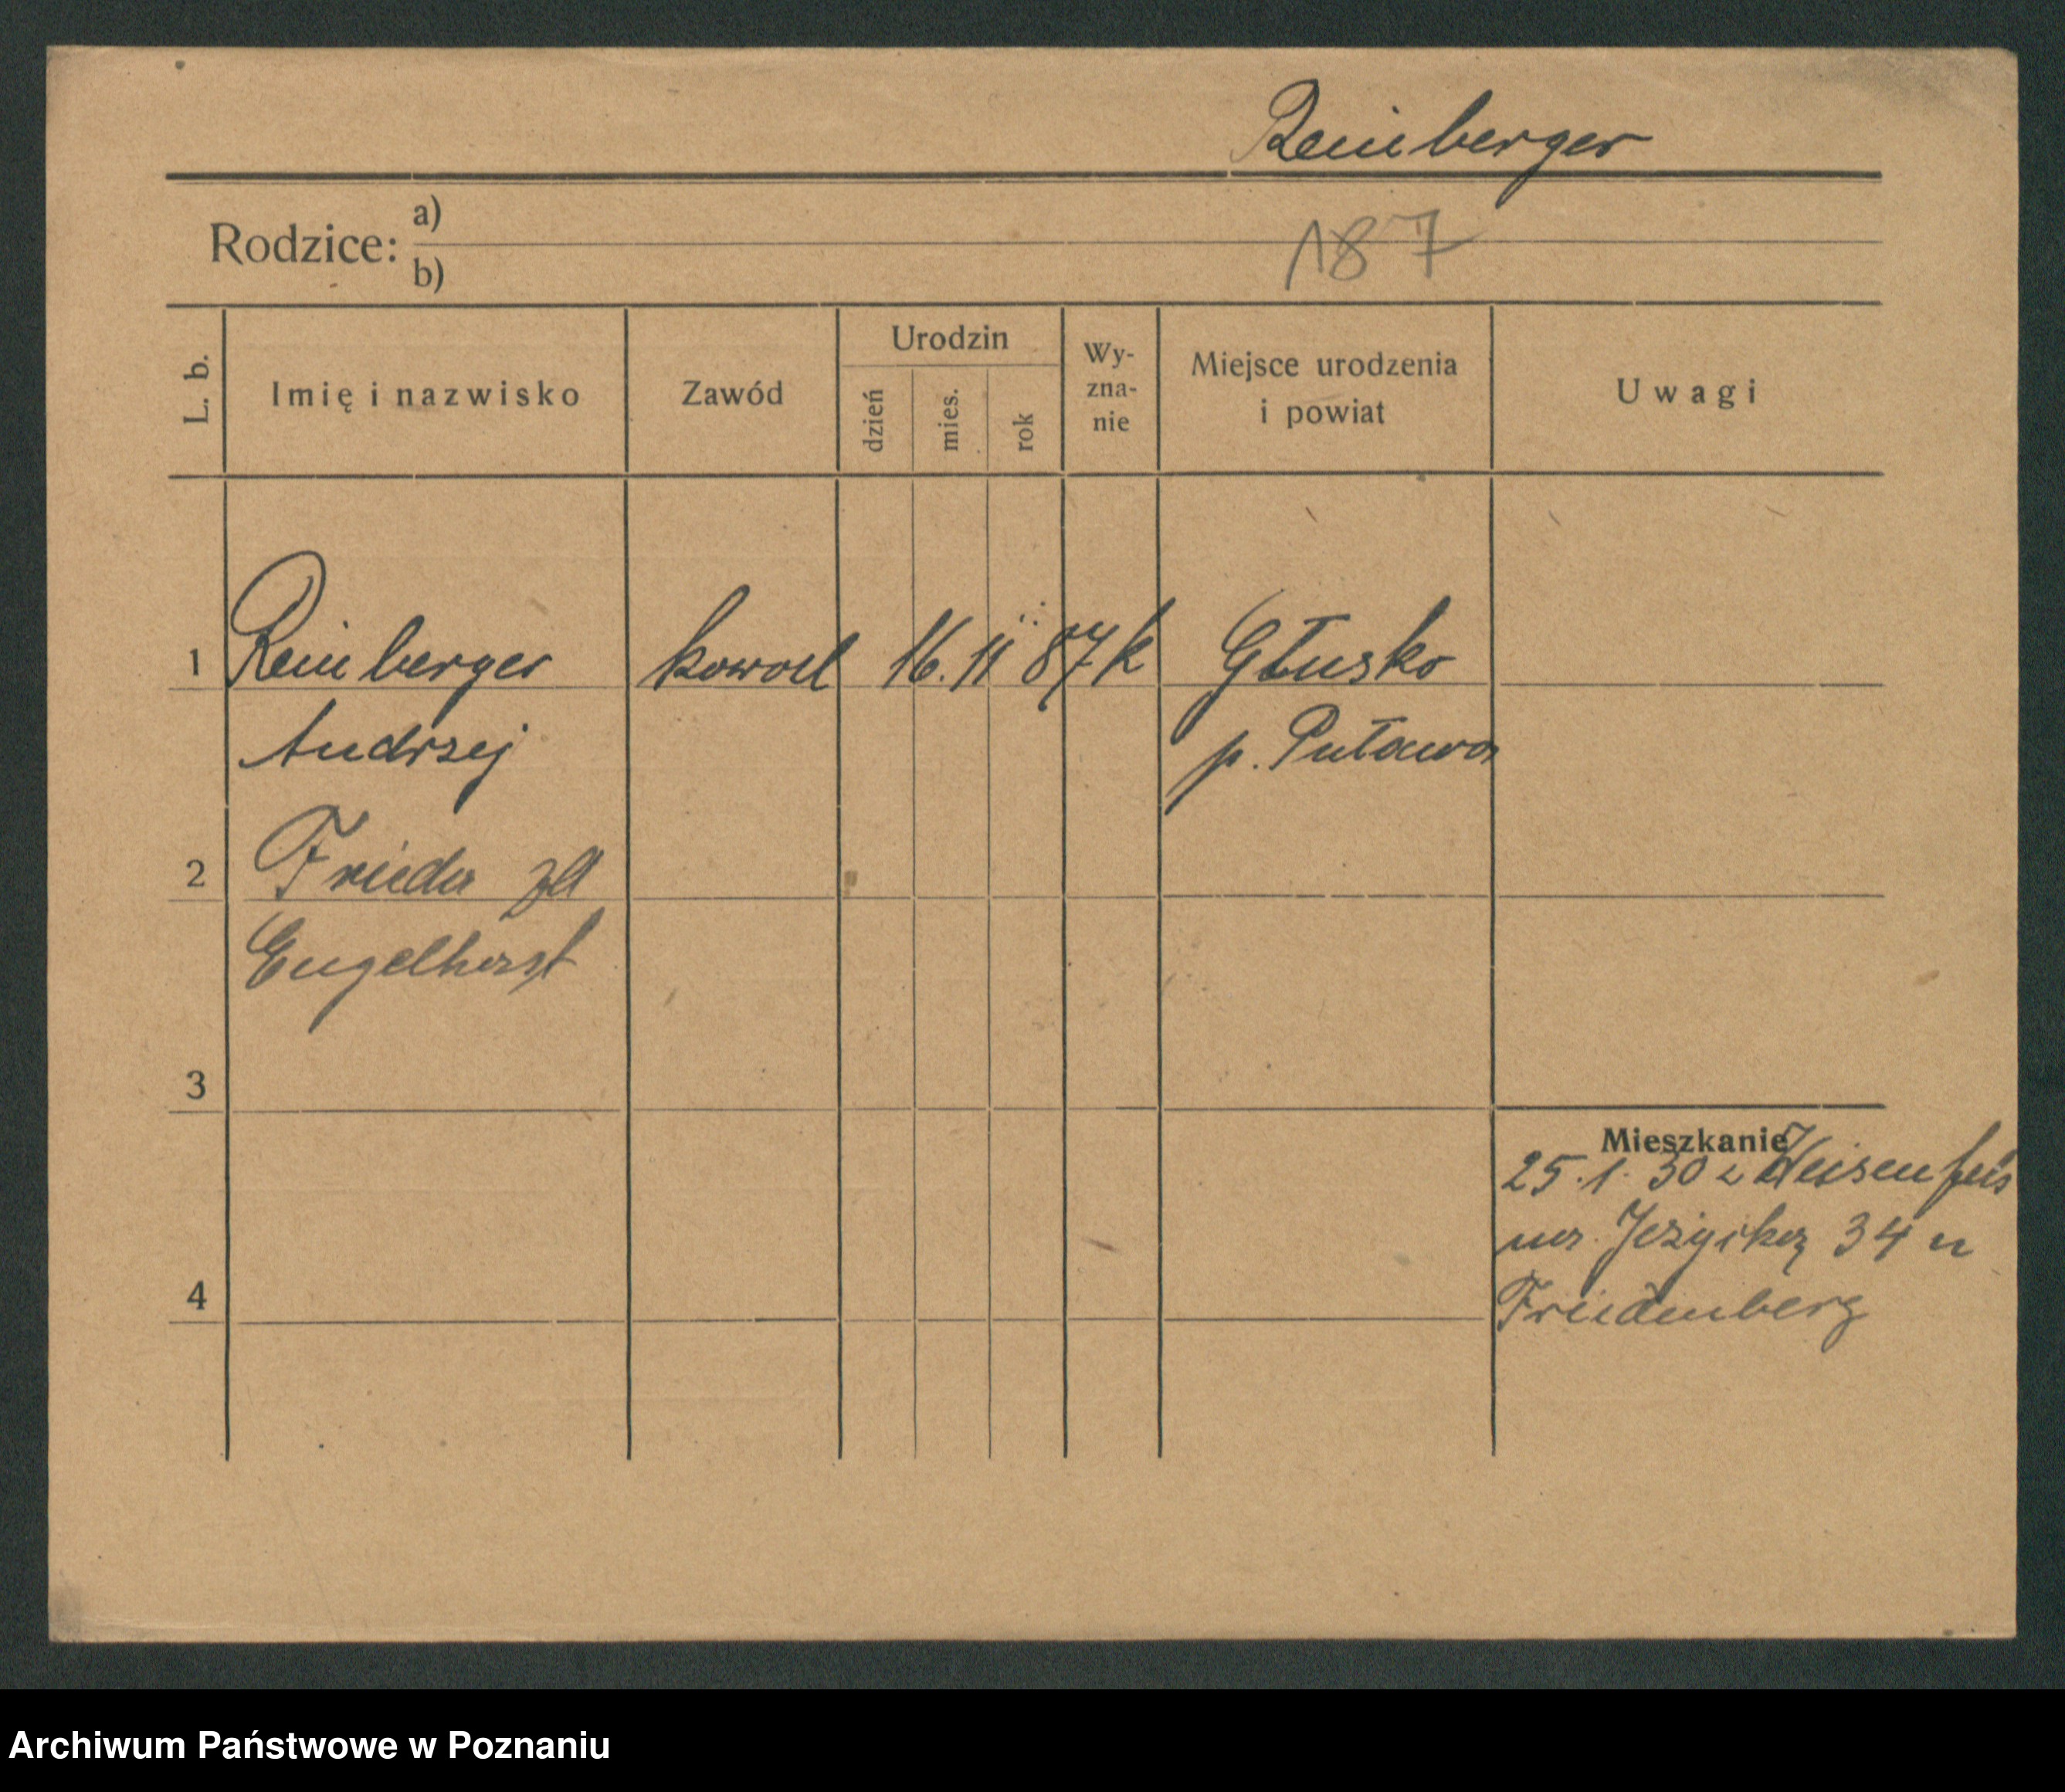 Reinberger
Rodzice:
a)
b)
187
L. b.
Imię i nazwisko
Zawód
Urodzin
dzień
mies.
rok
Wy-
zna-
nie
Miejsce urodzenia
i powiat
Uwagi
1 Reinberger kowal 16. 11 87 k Głusko
Andrzej p. Puława
2 Frieda
Engelhorst
3
4
Mieszkanie
25. 1. 30 z
34
Friedenberg
Archiwum Państwowe w Poznaniu